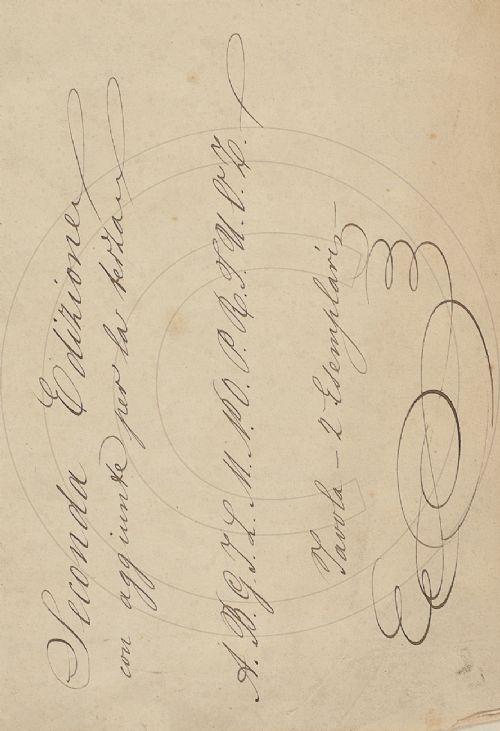 Seconda Edizione
con aggiunte per la terza
A. B. G. I. L. M. N. O. P. R. T. U. V. Z.
Tavola — 2 Esemplari —